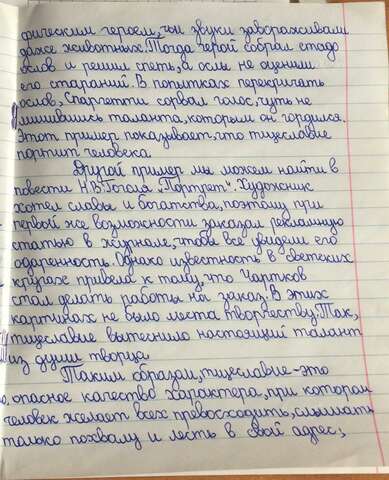 фическим героем, чьи звуки завораживали
даже животных. Тогда герой собрал стадо
ослов и решил спеть, а ослы не оценили
его стараний. В попытках перекричать
ослов, Спагетти сорвал голос, чуть не
лишившись таланта, которым он гордился.
Этот пример показывает, что тщеславие
портит человека.
Другой пример мы можем найти в
повести Н.В. Гоголя „Портрет“. Художник
хотел славы и богатства, поэтому при
первой же возможности заказал рекламную
статью в журнале, чтобы все увидели его
одаренность. Однако известность в светских
кругах привела к тому, что Чартков
стал делать работы на заказ. В этих
картинах не было места творчеству. Так,
тщеславие вытеснило настоящий талант
из души творца.
Таким образом, тщеславие - это
опасное качество характера, при котором
человек желает всех превосходить, слышать
только похвалу и лесть в свой адрес;